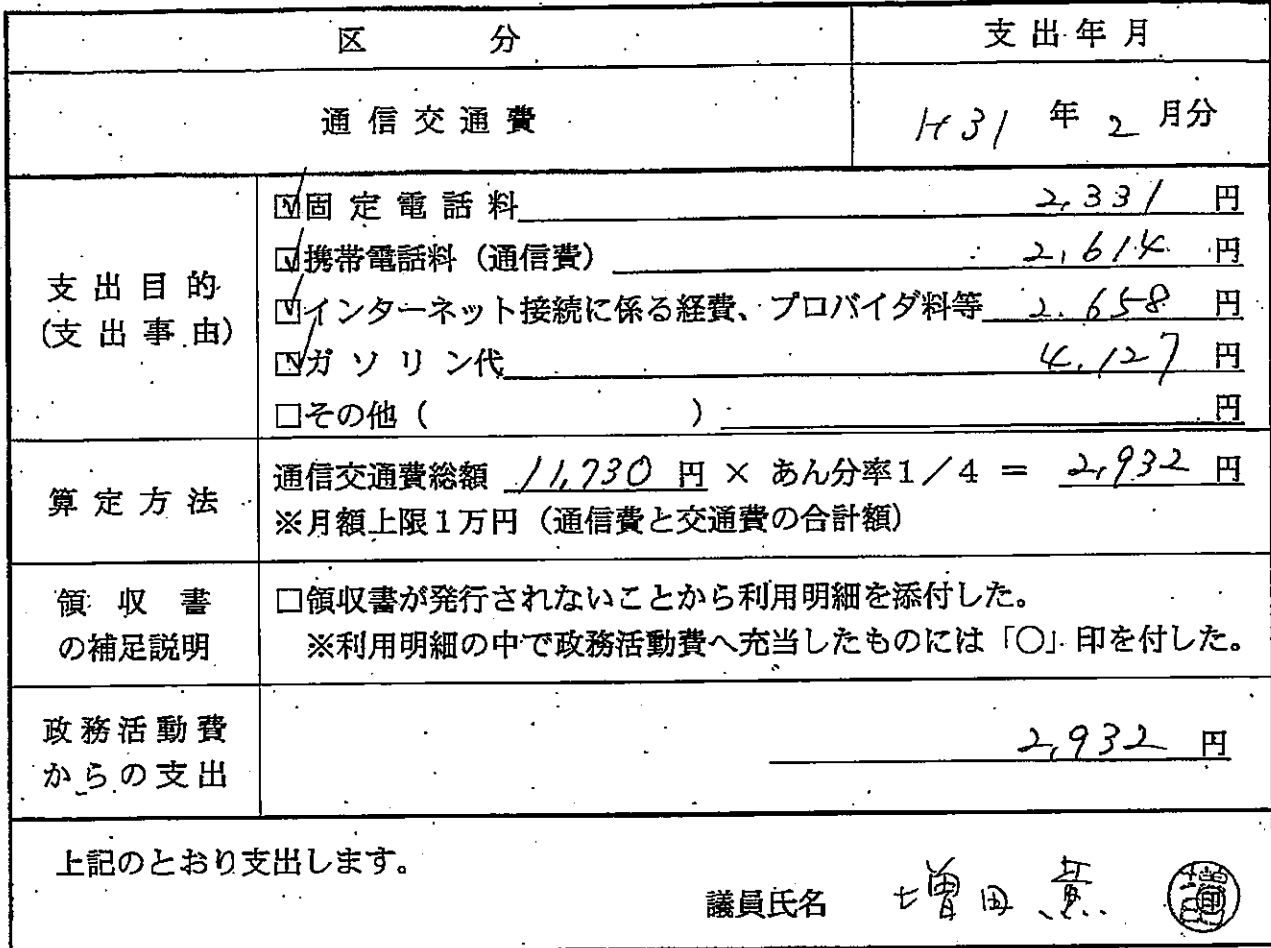 区 分 支出年月
通信交通費 H31 年 2 月分
支出目的
(支出事由)
☑固定電話料 2,331 円
☑携帯電話料(通信費) 2,614 円
☑インターネット接続に係る経費、プロバイダ料等 2,658 円
☑ガソリン代 4,127 円
□その他( ) 円
算定方法
通信交通費総額 11,730 円 × あん分率1/4 = 2,932 円
※月額上限1万円(通信費と交通費の合計額)
領収書
の補足説明
□領収書が発行されないことから利用明細を添付した。
※利用明細の中で政務活動費へ充当したものには「○」印を付した。
政務活動費
からの支出
2,932 円
上記のとおり支出します。
議員氏名 増田 薫